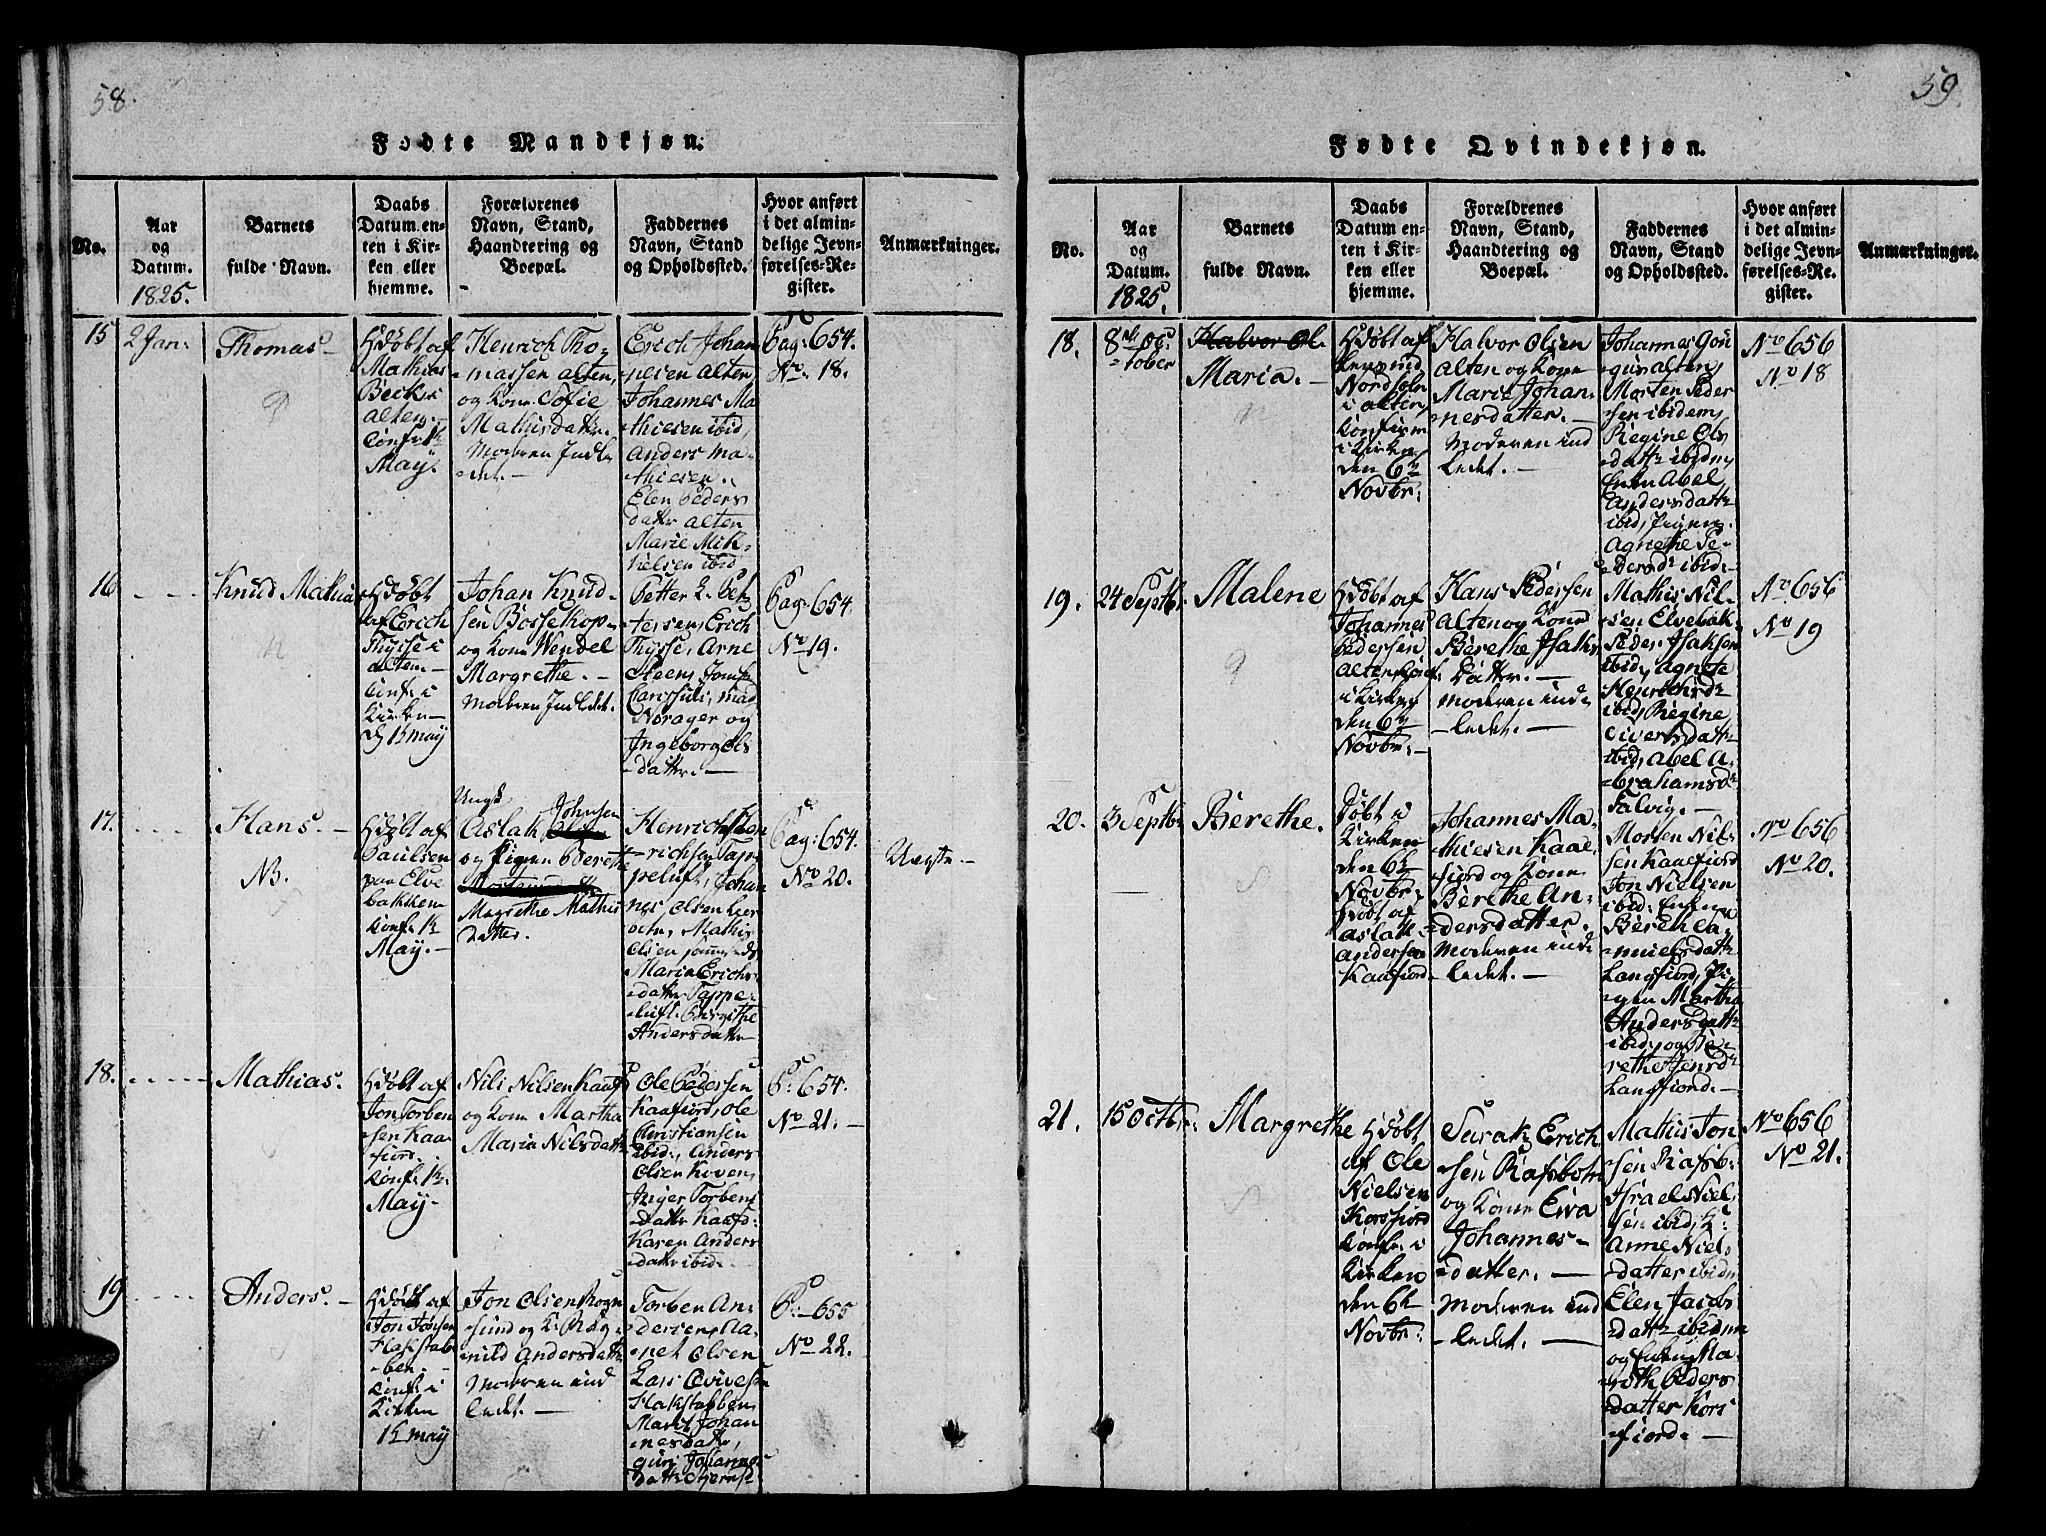 58.
Fødte Mandkjøn.
No.
Aar
og
Datum.
1825.
Barnets
fulde Navn.
Daabs
Datum en-
ten i Kir-
ken eller
hjemme.
Forældrenes
Navn, Stand,
Haandtering og
Boepæl.
Faddernes
Navn, Stand
og Opholdssted.
Hvor anført
i det almin-
delige Jevn-
førelses-Re-
gister.
Anmærkninger.
15
2 Jan:
Thomas-
Hdøbt af
Mathias
Beck
alten.
Conf: 1
May.
Henrich Tho-
massen alten,
og Kone Sofie
Mathisdatr.
Modren Indle
det.-
Erich Johan
nesen alten
Johannes Ma
thiesen ibid,
Anders Ma-
thiesen.
Elen Peders
datr alten
Marie Mik
kelsen ibid
Pag: 654.
No. 18.
16
Knud Mathias
Hdøbt
af Erich
Thysse i
alten-
Conf: i
Kirken-
May
Johan Knud-
sen Bossekop-
og Kone Wendel
Margrethe.-
Modren Indledt.
Petter
tersen, Erich
Thysse, Arne
Steen,
mad
Norager og
Ingeborg Ols
datter.-
Pag: 654.
No 19.
17.
Hans.-
NB.
Hdøbt af
Paulsen
paa Elve
bakken
Conf: 1
May.-
Ungk
Aslak Johnsen
og Pigen Berethe
Magrethe Mathis
datter.
Henrich Hen
richsen Tap-
peluft, Johan
nes Olsen
Mathis
Olsen
Maria Erichs-
datr Tappe-
luft. Birgithe
Andersdatr
Pag: 654.
No 20.
Uægte.-
18.
Mathias.
Hdøbt af
Jon Torben
sen Kaa-
fiord.
Conf: 1
May-
Nils Nilsen Kaafd
og Kone Martha
Maria Nilsdatr
Ole Pedersen
Kaafiord, Ole
Christiansen
ibid:, Anders
Olsen
Inger Torbens
datr Kaafd:
Karen Anders
datr ibid.
P: 654.
No 21.-
19
Anders.-
Hdøbt af
Jon
Flakstab-
ben.-
Conf: i
Kirken
1 may
Jon Olsen Rogn
sund og K: Rag-
nild Andersdatr
Modren ind
ledt.-
Torben An-
dersen,
Olsen
Lars
Flakstabben
Marit Johan
nesdatr,
Johannes
datr
P: 655
No 22.
59.
Fødte Qvindekjøn.
No.
Aar
og
Datum.
1825.
Barnets
fulde Navn.
Daabs
Datum en-
ten i Kir-
ken eller
hjemme.
Forældrenes
Navn, Stand,
Haandtering og
Boepæl.
Faddernes
Navn, Stand
og Opholdssted.
Hvor anført
i det almin-
delige Jevn-
førelses-Re-
gister.
Anmærkninger.
18.
8de Oc-
tober
Halvor Ol.
Maria.-
Hdøbt af
i alten,
Confirm
i Kirken
den 6
Novbr:
Halvor Olsen
alten og Kone
Marie Johan-
nesdatter.-
Moderen ind
ledet.-
Johannes
alten,
Morten Peder
sen ibidem,
Regine Ols
datr ibidm,
Enken Abel
Andersdatr
ibid, Pigen
Agnethe Pe-
dersdr ibid:-
No 656
No 18
19.
24 Septbr:
Malene
Hdøbt af
Johannes
Pedersen
alten
i Kirken
den 6
Novbr:-
Hans Pedersen
alten og Kone
Berethe Isaks
datter.-
Moderen ind
ledet.-
Mathis Nil-
sen Elvebak-
Peder Isaksen
ibid, Agnete
Henrichsdr
ibid, Regine
Siversdatr
ibid, Abel A-
brahamsdr
Talvig.-
No 656
No 19
20.
3 Septbr
Berethe.
Døbt i
Kirken
den 6
Novbr.
Hdøbt af
Aslak
Andersen
Kaafiord.
Johannes Ma-
thiesen Kaae
fiord og Kone
Berethe An-
dersdatter.
Moderen ind
ledet.-
Morten Nil-
sen Kaaefiord
Jon Nielsen
ibid: Enken
Bereth Da-
nielsdatr
Langfiord, Pi-
gen Martha
Andersdatr
ibid: og Be-
rethe Jensdr
Langfiord.-
No 656
No 20.
21.
15 Octbr:
Margrethe
Hdøbt
af Ole
Nielsen
Korsfiord
Conf: i
Kirken
den 6
Novbr:
Surak Erich
sen Rafsbotn
og Kone Ewa
Johannes-
datter.-
Moderen ind
ledet.-
Mathis Jon
sen Rafsb:
Israel Niel
sen ibid, K:
Anne Niels
datter ibidm
Elen Jacobs
datr ibidm
og Enken Ma-
reth Peders
datter Kors
fiord.-
No 656
No 21.